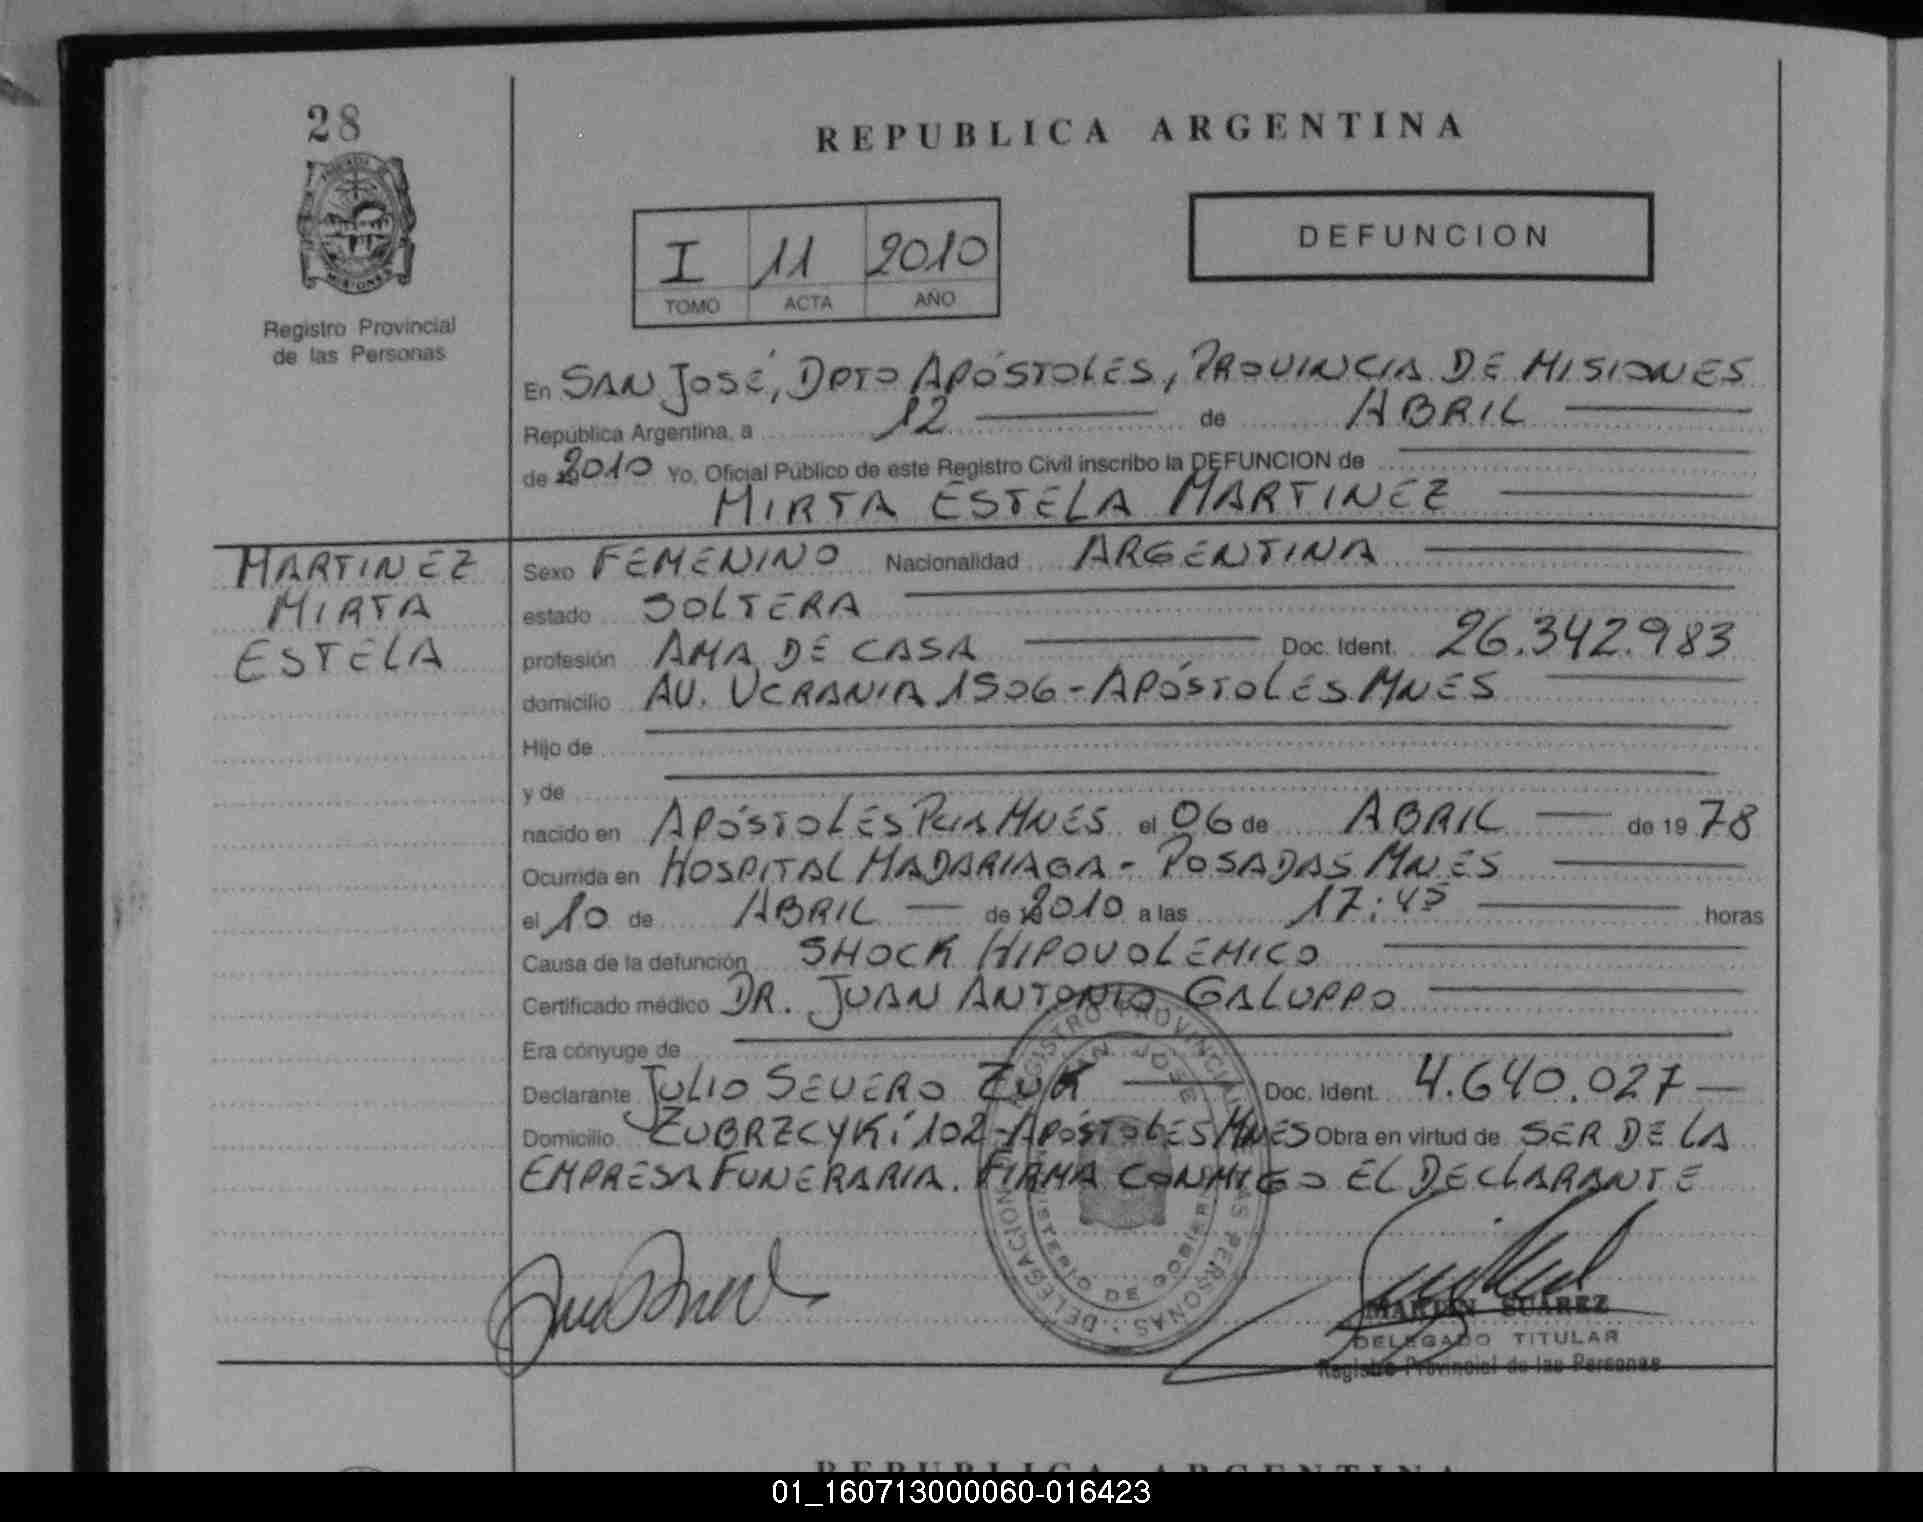 28
REPUBLICA ARGENTINA
I 11 2010
TOMO ACTA AÑO
DEFUNCION
Registro Provincial
de las Personas
En SAN JOSÉ, DPTO APÓSTOLES, PROVINCIA DE MISIONES
República Argentina, a 12 de ABRIL
de 2010 Yo, Oficial Público de este Registro Civil inscribo la DEFUNCION de
MIRTA ESTELA MARTINEZ
MARTINEZ
MIRTA
ESTELA
Sexo FEMENINO Nacionalidad ARGENTINA
estado SOLTERA
profesión AMA DE CASA Doc. Ident. 26.342.983
domicilio AV. UCRANIA 1506 - APÓSTOLES MNES
Hijo de
y de
nacido en APÓSTOLES PCIA MNES el 06 de ABRIL de 1978
Ocurrida en HOSPITAL MADARIAGA - POSADAS MNES
el 10 de ABRIL de 2010 a las 17:45 horas
Causa de la defunción SHOCK HIPOVOLEMICO
Certificado médico DR. JUAN ANTONIO GALUPPO
Era cónyuge de
Declarante JULIO SEVERO ZUK Doc. Ident. 4.640.027
Domicilio ZUBRZCYKI 102 - APÓSTOLES MNES Obra en virtud de SER DE LA
EMPRESA FUNERARIA. FIRMA CONMIGO EL DECLARANTE
REGISTRO PROVINCIAL DE LAS PERSONAS · DELEGACION
SAN JOSE
MINISTERIO DE GOBIERNO
MARTIN SUAREZ
DELEGADO TITULAR
Registro Provincial de las Personas
REPUBLICA ARGENTINA
01_160713000060-016423